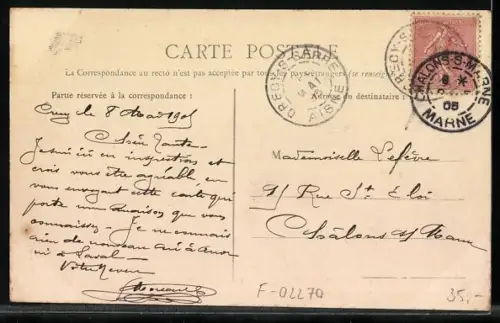 CARTE POSTALE
La Correspondance au recto n'est pas acceptée par tous les pays étrangers (se renseigner
Partie réservée à la correspondance :
Adresse du destinataire :
CRÉCY-S-SERRE
AISNE
CHALONS-S-MARNE
8
05
MARNE
Crécy le 8 Mai 1905
Chère Tante
Je suis ici en inspection et
crois vous être agréable en
vous envoyant cette carte qui
porte une maison que vous
connaissez. Je ne connais
rien de nouveau ni à
ni à Laval
Votre neveu
Mademoiselle Lefèvre
91 Rue St Eloi
Châlons s/ Marne
F-02270
35,-